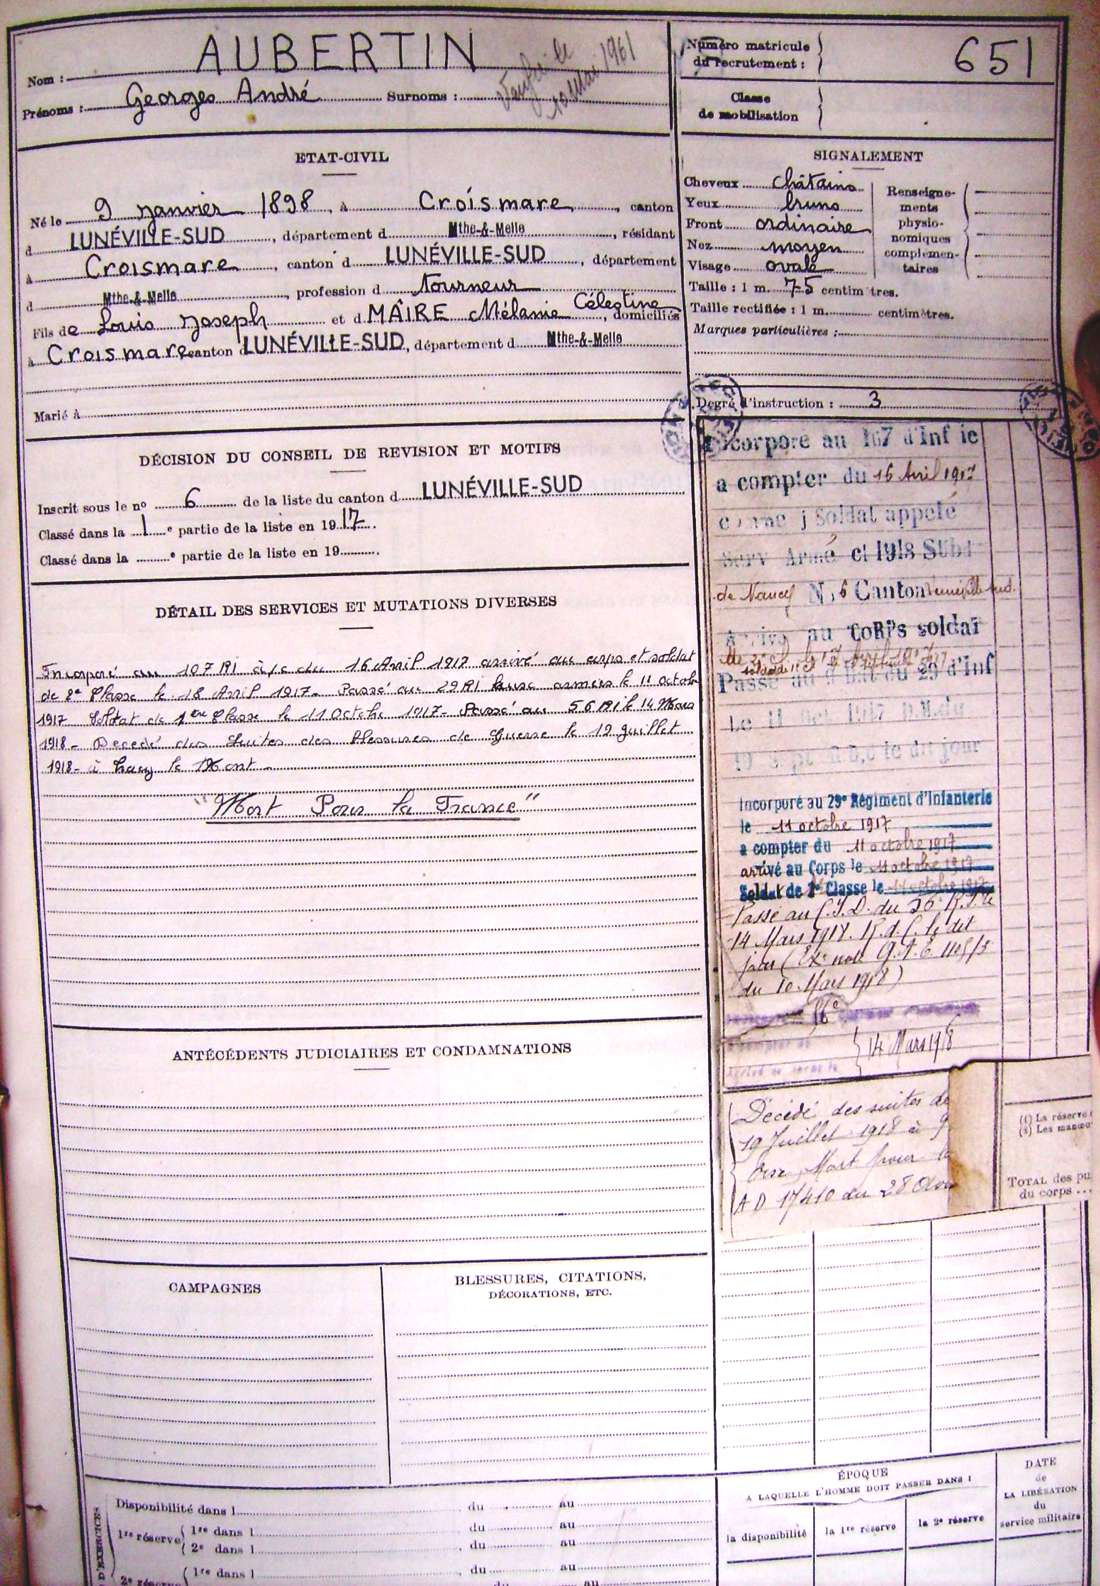 Nom : AUBERTIN
Prénoms : Georges André Surnoms :
10 Mai 1961
Numéro matricule
du recrutement :
651
Classe
de mobilisation
ETAT-CIVIL
Né le 9 Janvier 1898, à Croismare, canton
d LUNÉVILLE-SUD, département d Mthe-&-Melle, résidant
à Croismare, canton d LUNÉVILLE-SUD, département
d Mthe-&-Melle, profession d Tourneur
Fils de Louis Joseph et d MAIRE Mélanie Célestine, domiciliés
à Croismare canton d LUNÉVILLE-SUD, département d Mthe-&-Melle
Marié à
SIGNALEMENT
Cheveux châtains
Yeux bruns
Front ordinaire
Nez moyen
Visage ovale
Renseigne-
ments
physio-
nomiques
complémen-
taires
Taille : 1 m. 75 centimètres.
Taille rectifiée : 1 m. centimètres.
Marques particulières :
Degré d'instruction : 3
DÉCISION DU CONSEIL DE REVISION ET MOTIFS
Inscrit sous le nº 6 de la liste du canton d LUNÉVILLE-SUD
Classé dans la 1e partie de la liste en 1917.
Classé dans la e partie de la liste en 19
DÉTAIL DES SERVICES ET MUTATIONS DIVERSES
Incorporé au 107 RI à/c du 16 Avril 1917 arrivé au corps et soldat
de 2e Classe le 18 Avril 1917 - Passé au 29 RI aux armées le 11 Octobre
1917 Soldat de 1ère Classe le 11 Octobre 1917 - Passé au 56 RI le 14 Mars
1918 - Décédé des suites des Blessures de Guerre le 19 Juillet
1918 - à
"Mort Pour la France"
Incorporé au 167 d'Inf ie
a compter du 16 Avril 1917
Soldat appelé
Serv Armé cl 1918 Subd
de Nancy No 6 Canton Lunéville Sud.
Arrivé au Corps soldat
Passé au 9 Bat du 29 d'Inf
Le 11 Oct 1917
le dit jour
Incorporé au 29e Régiment d'Infanterie
le 11 octobre 1917
a compter du 11 octobre 1917
arrivé au Corps le 11 octobre 1917
Soldat de 2e Classe le 11 octobre 1917
Passé au C.I.D. du 56e R.I. le
14 Mars 1918. R.d.C. le dit
jour
du 10 Mars 1918)
14 Mars 1918
Décédé des suites de
19 Juillet 1918 à
Oise Mort pour la
AD 17410 du 28
(1) La réserve
(2) Les manœu
TOTAL des pu
du corps ...
ANTÉCÉDENTS JUDICIAIRES ET CONDAMNATIONS
CAMPAGNES
BLESSURES, CITATIONS,
DÉCORATIONS, ETC.
D'EXERCICES
Disponibilité dans l du au
1re réserve
1re dans l du au
2e dans l du au
2e réserve
1re dans l du au
ÉPOQUE
A LAQUELLE L'HOMME DOIT PASSER DANS :
la disponibilité
la 1re réserve
la 2e réserve
DATE
de
LA LIBÉRATION
du
service militaire